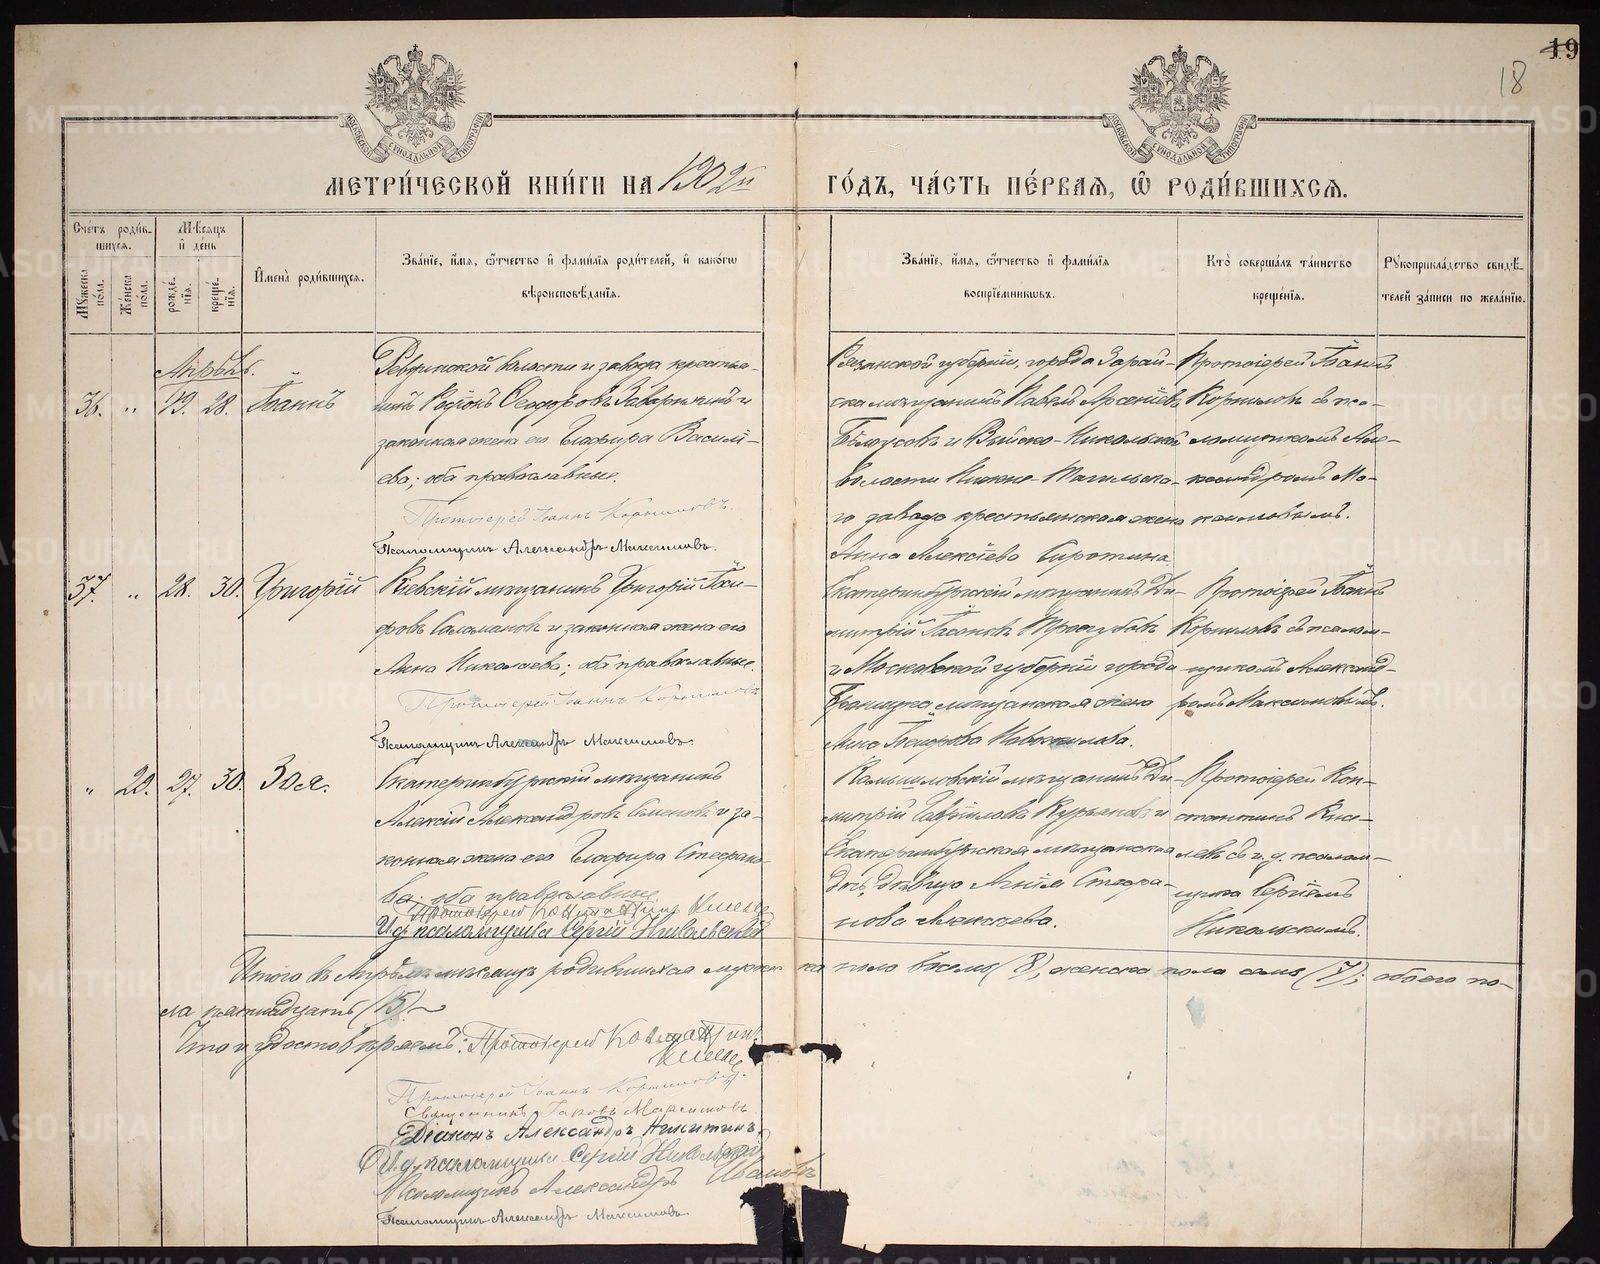 19
18
МОСКОВСКОЙ СУНОДАЛЬНОЙ ТИПОГРАФІИ
МОСКОВСКОЙ СУНОДАЛЬНОЙ ТИПОГРАФІИ
МЕТРИ́ЧЕСКОЙ КНИ́ГИ НА 1902й ГО́ДЪ, ЧА́СТЬ ПЕ́РВАЯ, Ѡ РОДИ́ВШИХСЯ.
Сче́тъ роди́в-
шихся.
Мѣ́сяцъ
и де́нь
Му́жеска по́ла.
Же́нска по́ла.
рожде́-
нїя.
креще́-
нїя.
Имена̀ роди́вшихся.
Зва́нїе, и́мя, ѻ́тчество и фами́лїя роди́телей, и како́гѡ
вѣроисповѣ́данїя.
Зва́нїе, и́мя, ѻ́тчество и фами́лїя
воспрїе́мникѡвъ.
Кто̀ соверша́лъ та́инство
креще́нїя.
Рукоприкла́дство свидѣ́-
телей за́писи по жела́нїю.
Апрѣль.
36. „ 19. 28. Іоаннъ
Ревдинской волости и завода крестья-
нинъ Родіонъ Ѳеодоровъ и
законная жена его Глафира Василі-
ева; оба православные.
Протоіерей Іоаннъ Корниловъ.
Псаломщикъ Александръ Максимовъ.
Рязанской губерніи, города Зарай-
ска мѣщанинъ Павелъ Арсеніевъ
Бѣлоусовъ и Выйско-Никольской
волости Нижне-Тагильска-
го завода крестьянская жена
Анна Алексіева Сиротина.
Протоіерей Іоаннъ
Корниловъ съ пса-
ломщикомъ Але-
ксандромъ Ма-
ксимовымъ.
37. „ 28. 30. Григорій
Кіевскій мѣщанинъ Григорій
Саламановъ и законная жена его
Анна Николаева; оба православные.
Протоіерей Іоаннъ Корниловъ
Псаломщикъ Александръ Максимовъ.
Екатеринбургскій мѣщанинъ Ди-
митрій Іасоновъ
и Московской губерніи города
Бронницъ мѣщанская жена
Анна
Протоіерей Іоаннъ
Корниловъ съ псалом-
щикомъ Александ-
ромъ Максимовымъ.
„ 20. 27. 30. Зоя.
Екатеринбургскій мѣщанинъ
Алексій Александровъ Семеновъ и за-
конная жена его Глафира Стефано-
ва; оба православные
Протоіерей Константинъ
И. д. псаломщика Сергій Никольскій
Камышловскій мѣщанинъ Ди-
митрій Гавріиловъ Курьяковъ и
Екатеринбургская мѣщанская
дочь, дѣвица Агнія Стефа-
нова Алексѣева.
Протоіерей Кон-
стантинъ
съ и. д. псалом-
щика Сергіемъ
Никольскимъ.
Итого въ Апрѣлѣ мѣсяцѣ родившихся мужска пола восемь (8), женска пола семь (7); обоего по-
ла пятнадцать (15)
Что и удостовѣряемъ: Протоіерей Константинъ
Протоіерей Іоаннъ Корниловъ.
Священникъ Іаковъ Максимовъ
Діаконъ Александръ Никитинъ.
И. д. псаломщика Сергій Никольскій
Псаломщикъ Александръ Ивановъ
Псаломщикъ Александръ Максимовъ.
METRIKI.GASO-URAL.RU